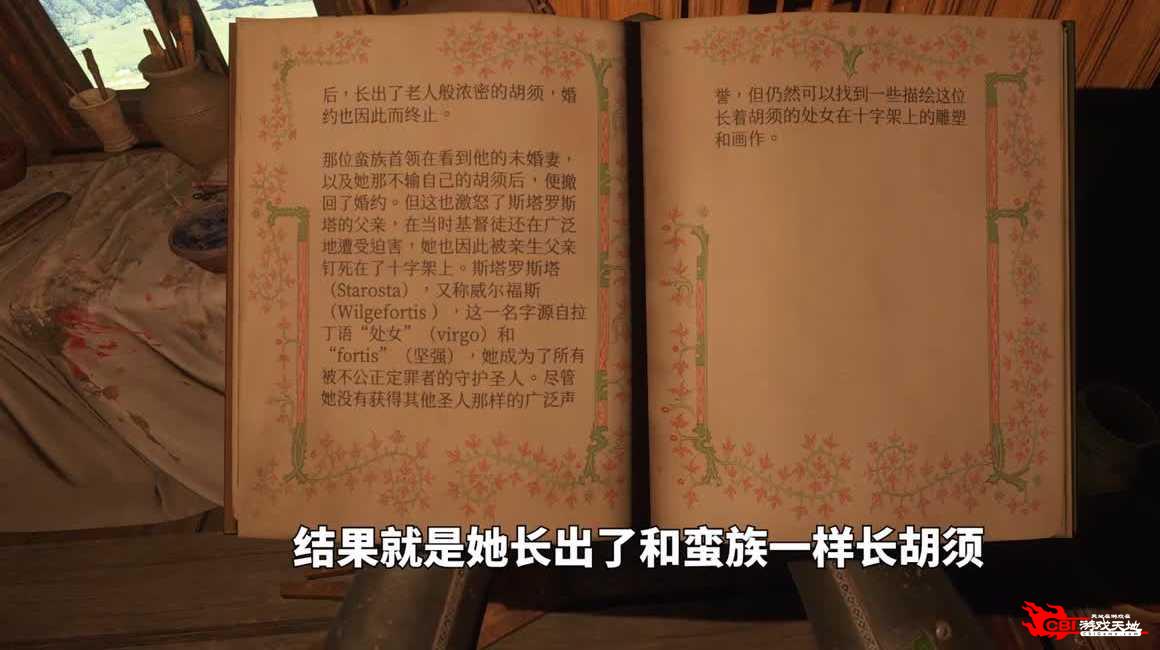 后，长出了老人般浓密的胡须，婚
约也因此而终止。
那位蛮族首领在看到他的未婚妻，
以及她那不输自己的胡须后，便撤
回了婚约。但这也激怒了斯塔罗斯
塔的父亲，在当时基督徒还在广泛
地遭受迫害，她也因此被亲生父亲
钉死在了十字架上。斯塔罗斯塔
（Starosta），又称威尔福斯
（Wilgefortis ），这一名字源自拉
丁语“处女”（virgo）和
“fortis”（坚强），她成为了所有
被不公正定罪者的守护圣人。尽管
她没有获得其他圣人那样的广泛声
誉，但仍然可以找到一些描绘这位
长着胡须的处女在十字架上的雕塑
和画作。
结果就是她长出了和蛮族一样长胡须
CBI游戏天地
CBIGame.com